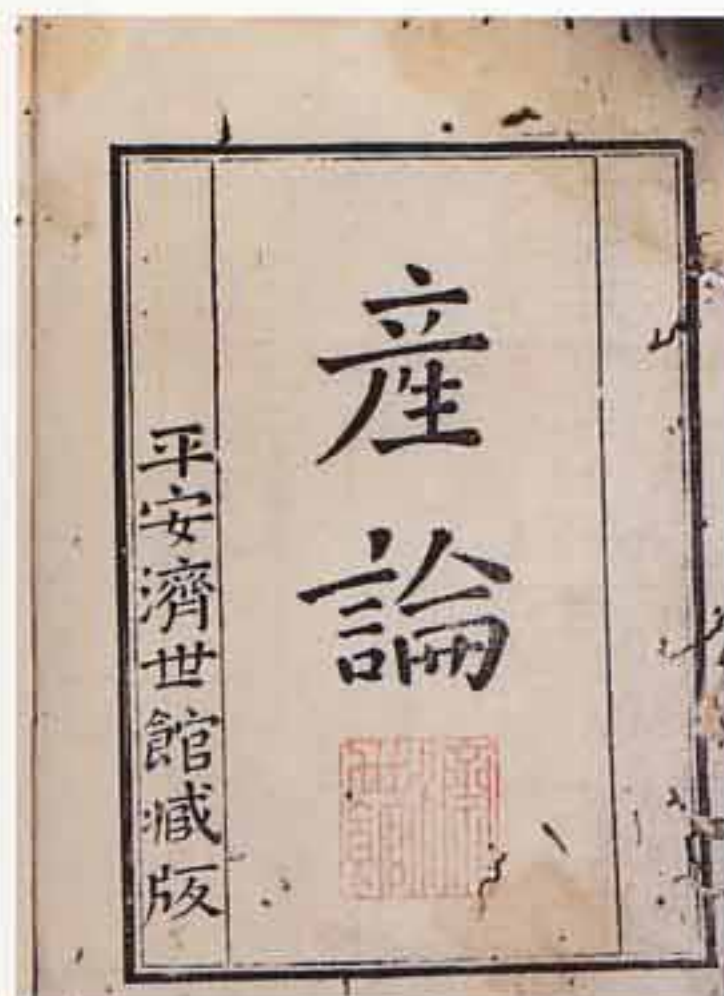 産論
平安濟世館藏版